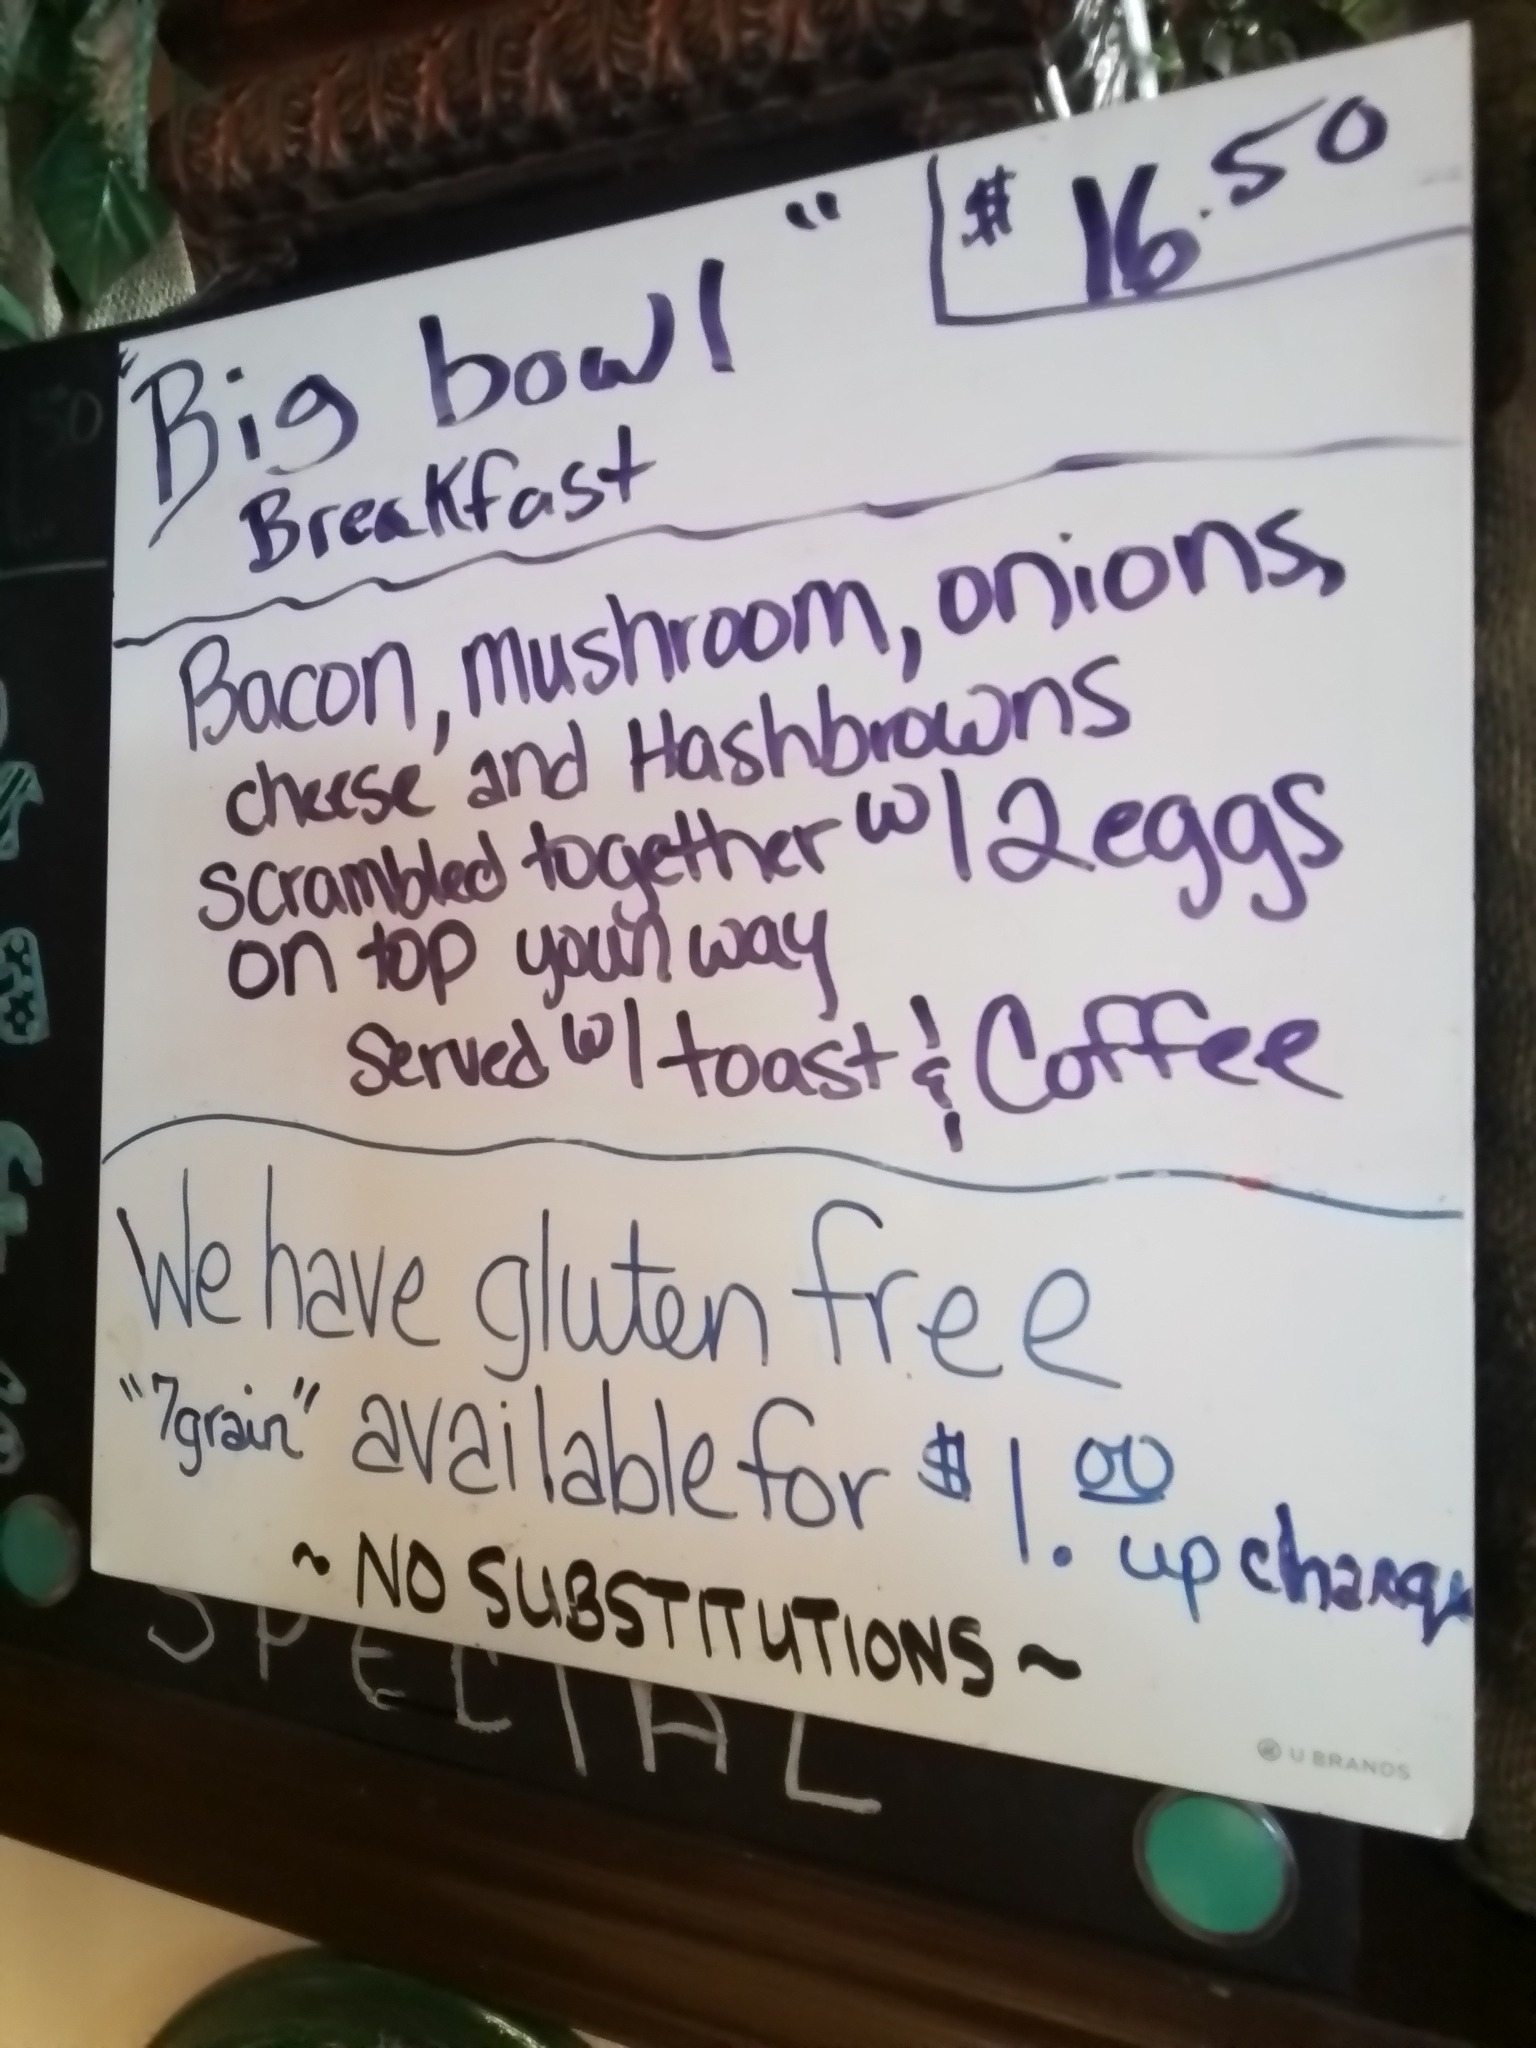 "Big bowl" $16.50
Breakfast
Bacon, mushroom, onions,
cheese and Hashbrowns
scrambled together w/ 2 eggs
on top your way
Served w/ toast & Coffee
We have gluten free
"7grain" available for $1.00 up charge
~ NO SUBSTITUTIONS ~
SPECIAL
U BRANDS
50